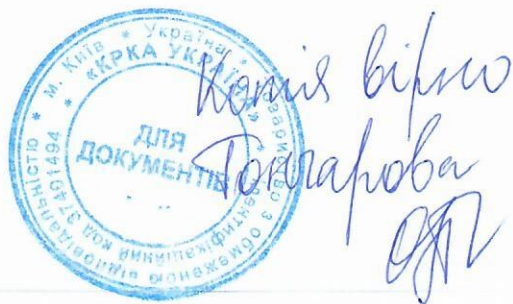 * Україна * м. Київ * Товариство з обмеженою відповідальністю
* «КРКА УКРАЇНА» * Ідентифікаційний код 37401494
ДЛЯ
ДОКУМЕНТІВ
Копія вірно
Гончарова